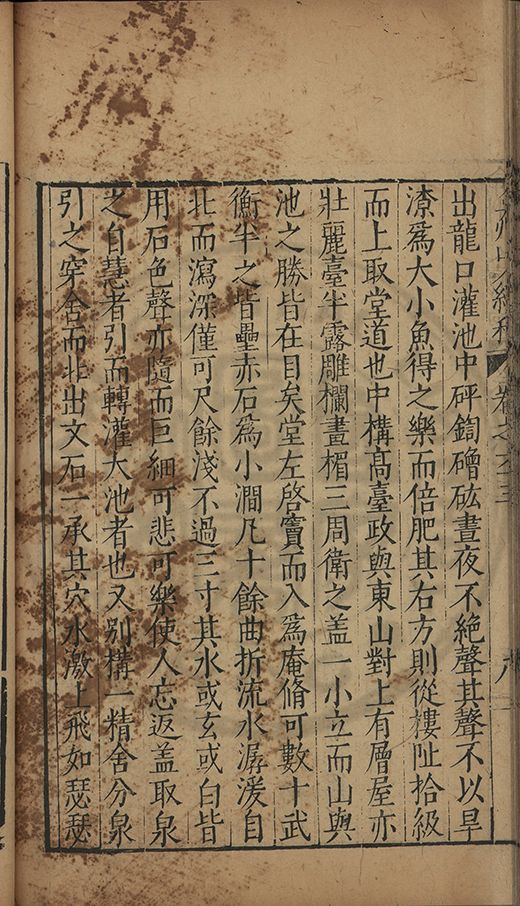 卷之六
八
出龍口灌池中砰鍧磳砿晝夜不絕聲其聲不以旱
潦爲大小魚得之樂而倍肥其右方則從樓阯拾級
而上取堂道也中構高臺政與東山對上有層屋亦
壯麗臺半露雕欄畫楯三周衛之盖一小立而山與
池之勝皆在目矣堂左啓竇而入爲庵脩可數十武
衡半之皆壘赤石爲小澗凡十餘曲折流水潺湲自
北而瀉深僅可尺餘淺不過三寸其水或玄或白皆
用石色聲亦隨而巨細可悲可樂使人忘返盖取泉
之自慧者引而轉灌大池者也又别構一精舍分泉
引之穿舍而北出文石一承其穴水激上飛如瑟瑟